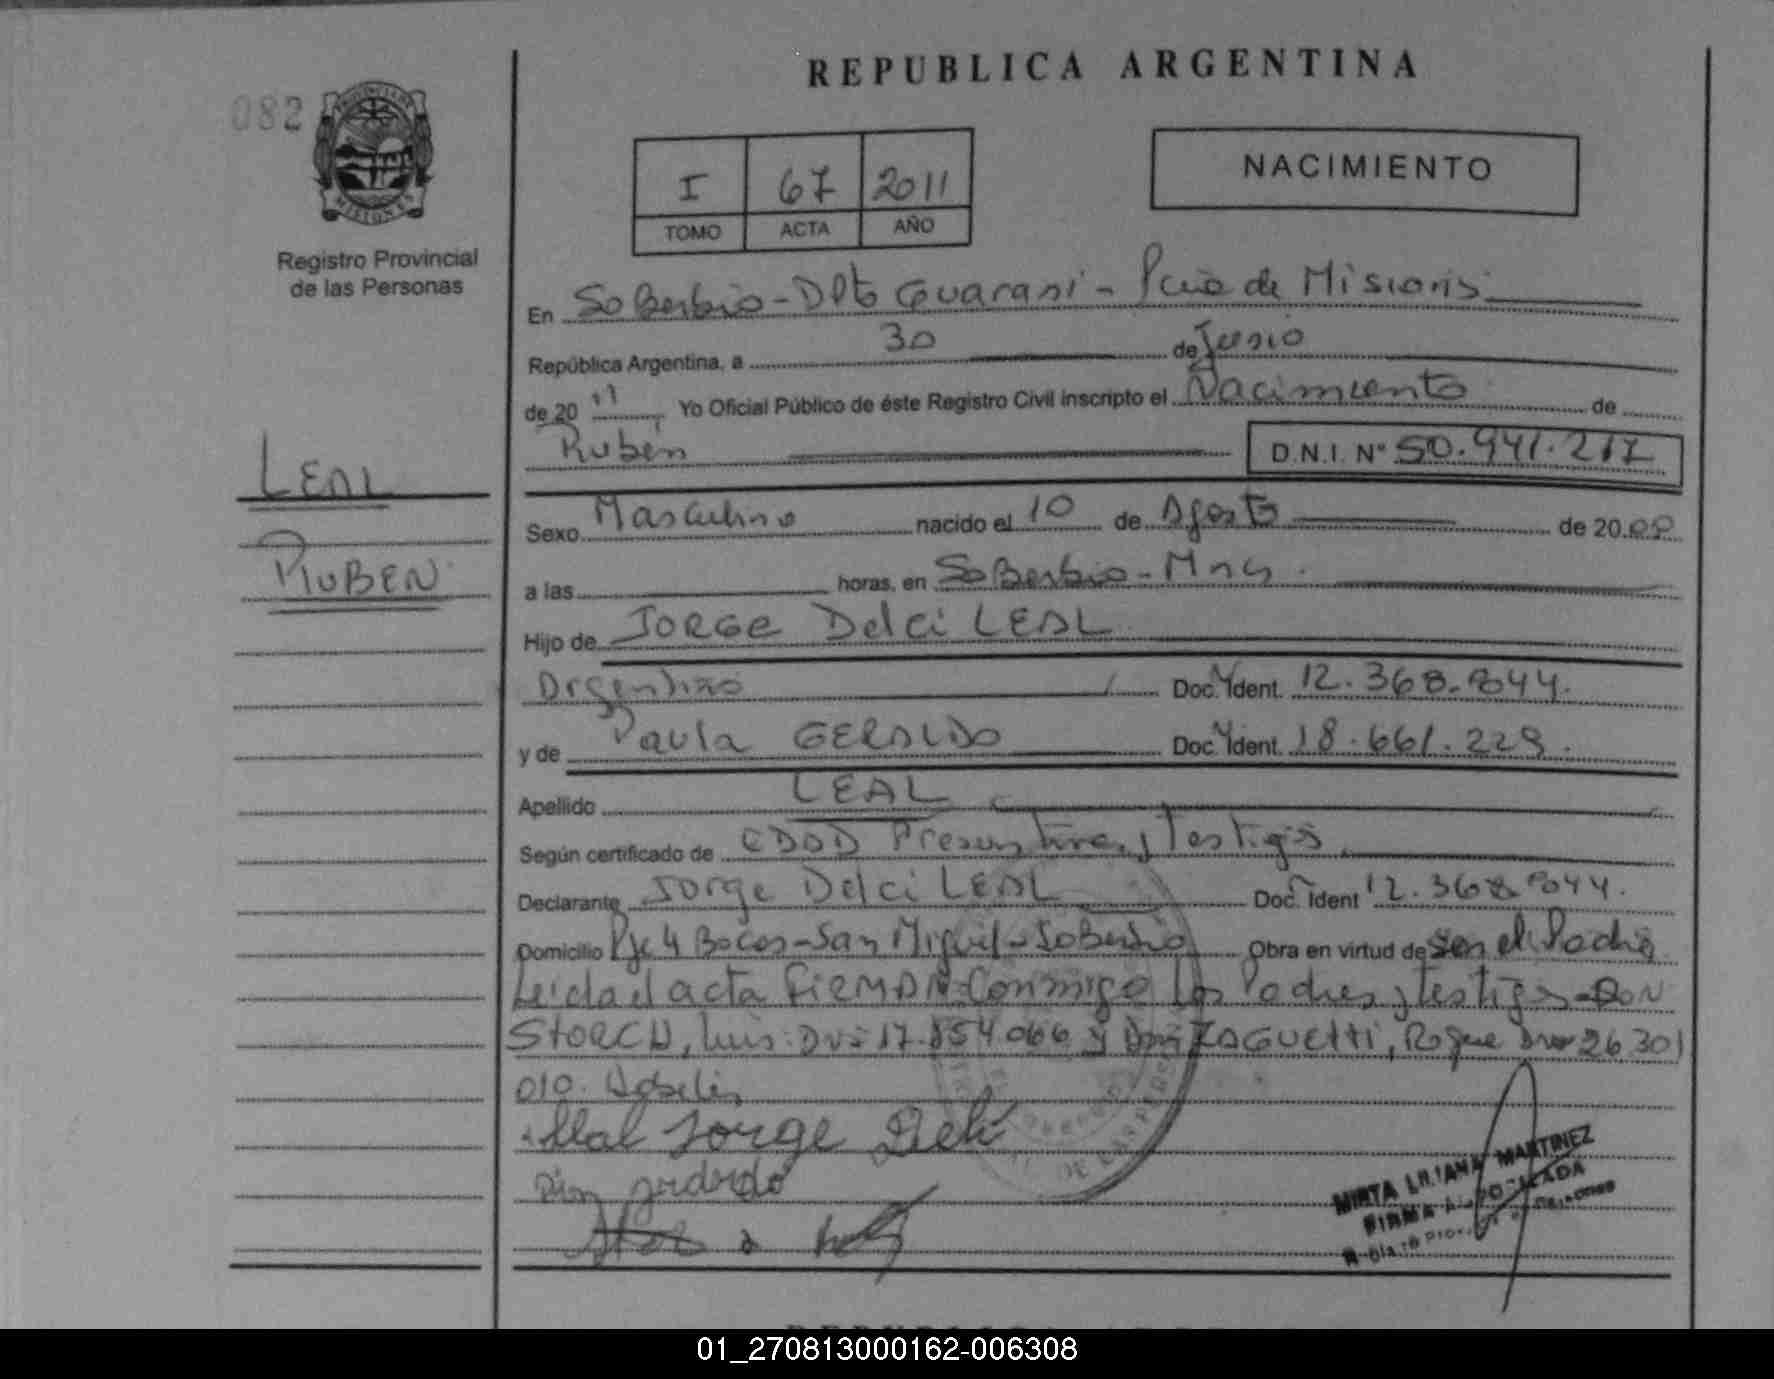 REPUBLICA ARGENTINA
082
PROVINCIA DE
MISIONES
Registro Provincial
de las Personas
I 67 2011
TOMO ACTA AÑO
NACIMIENTO
LEAL
RUBEN
En Soberbio - Dpto Guarani - Pcia de Misiones
República Argentina, a 30 de Junio
de 20 11, Yo Oficial Público de éste Registro Civil inscripto el Nacimiento de
Rubén D.N.I. N° 50.941.217
Sexo Masculino nacido el 10 de Agosto de 20
a las horas, en Soberbio - Mnes.
Hijo de JORGE Delci LEAL
Argentino Doc. Ident. 12.368.844.
y de Paula GERALDO Doc. Ident. 18.661.229.
Apellido LEAL
Según certificado de EDAD Presuntiva y Testigos
Declarante Jorge Delci LEAL Doc. Ident 12.368.844.
Domicilio Pje 4 Bocas - San Miguel - Soberbio Obra en virtud de ser el Padre.
Leída el acta FIRMAN Conmigo los Padres y testigos - DON
STORCH, Luis: DNI 17.854.066 y Don ZAGUETTI, Roque DNI 26 301
010.
Leal Jorge Delci
MIRTA LILIANA MARTINEZ
FIRMA